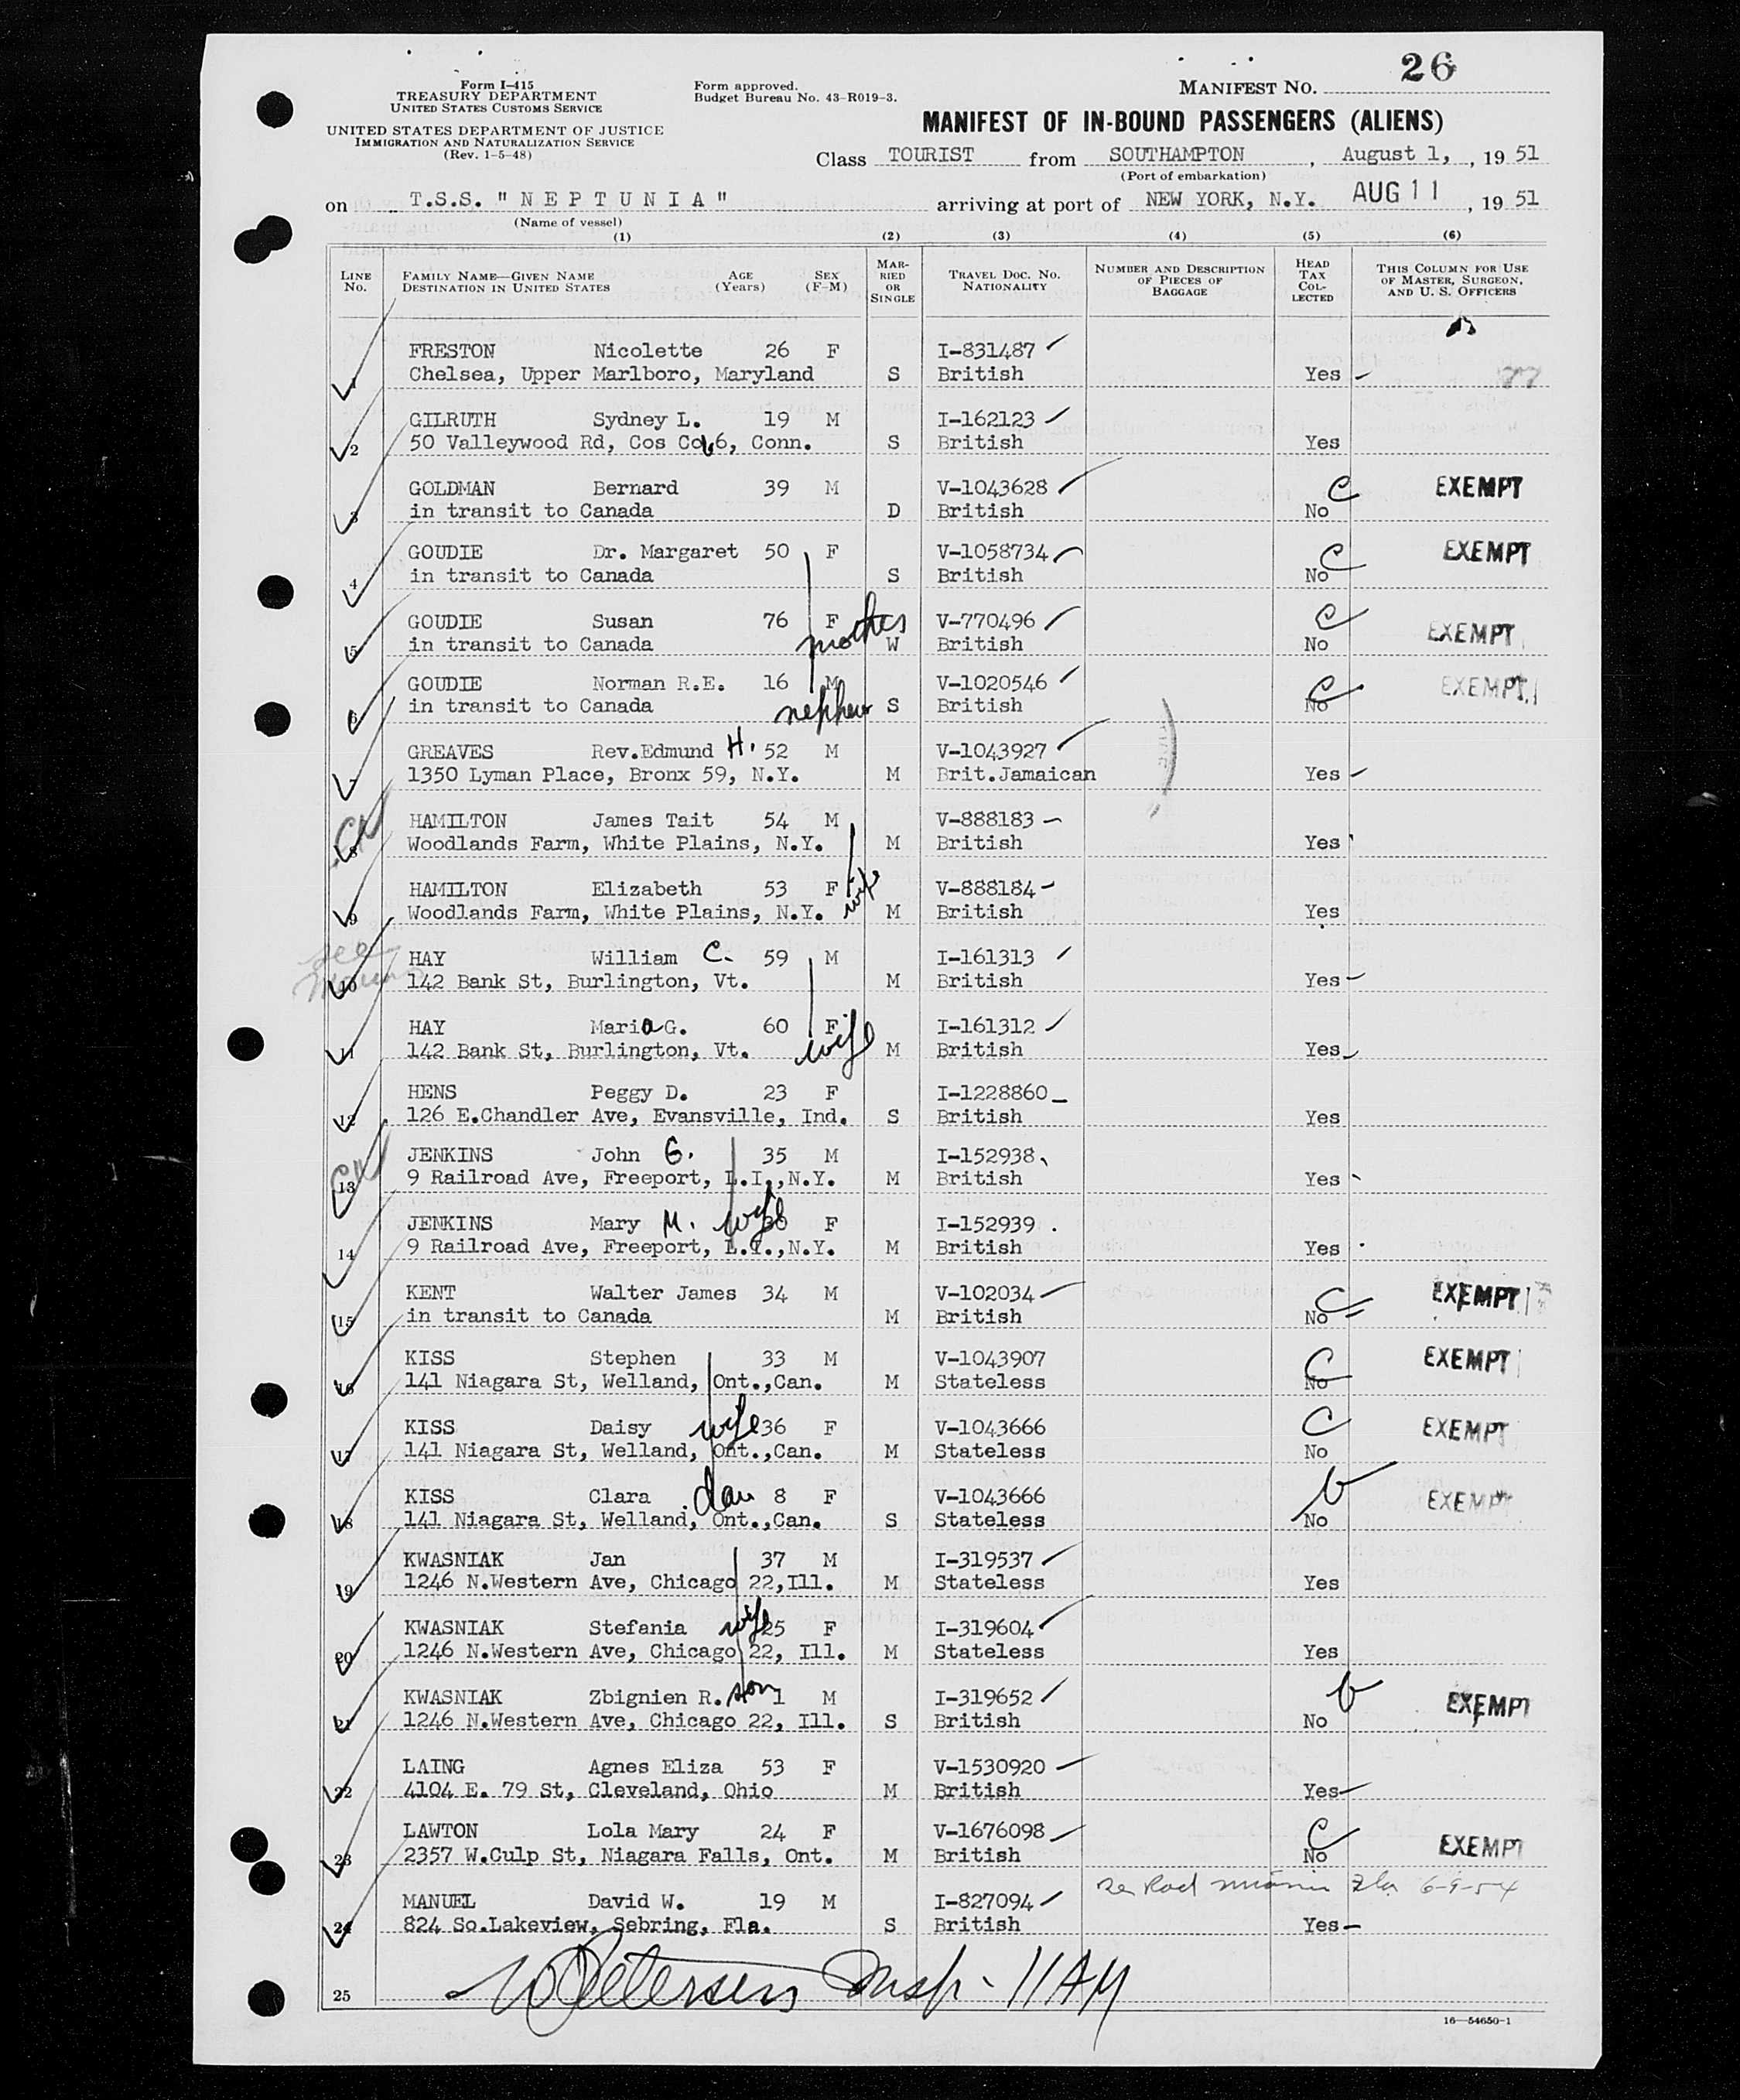 Form I-415
TREASURY DEPARTMENT
UNITED STATES CUSTOMS SERVICE
UNITED STATES DEPARTMENT OF JUSTICE
IMMIGRATION AND NATURALIZATION SERVICE
(Rev. 1-5-48)
Form approved.
Budget Bureau No. 43-R019-3.
MANIFEST NO. 26
MANIFEST OF IN-BOUND PASSENGERS (ALIENS)
Class TOURIST from SOUTHAMPTON, August 1, , 19 51
(Port of embarkation)
on T.S.S. "NEPTUNIA" arriving at port of NEW YORK, N.Y. AUG 11 , 19 51
(Name of vessel)
(1) (2) (3) (4) (5) (6)
LINE No. FAMILY NAME—GIVEN NAME DESTINATION IN UNITED STATES AGE (Years) SEX (F-M) MARRIED OR SINGLE TRAVEL DOC. NO. NATIONALITY NUMBER AND DESCRIPTION OF PIECES OF BAGGAGE HEAD TAX COLLECTED THIS COLUMN FOR USE OF MASTER, SURGEON, AND U. S. OFFICERS
FRESTON Nicolette 26 F I-831487
1 Chelsea, Upper Marlboro, Maryland S British Yes
GILRUTH Sydney L. 19 M I-162123
2 50 Valleywood Rd, Cos Cob 6, Conn. S British Yes
GOLDMAN Bernard 39 M V-1043628 C EXEMPT
3 in transit to Canada D British No
GOUDIE Dr. Margaret 50 F V-1058734 C EXEMPT
4 in transit to Canada S British No
GOUDIE Susan 76 F V-770496 C EXEMPT
5 in transit to Canada mother W British No
GOUDIE Norman R.E. 16 M V-1020546 C EXEMPT
6 in transit to Canada nephew S British No
GREAVES Rev.Edmund H. 52 M V-1043927
7 1350 Lyman Place, Bronx 59, N.Y. M Brit.Jamaican Yes
HAMILTON James Tait 54 M V-888183
8 Woodlands Farm, White Plains, N.Y. M British Yes
HAMILTON Elizabeth 53 F wife V-888184
9 Woodlands Farm, White Plains, N.Y. M British Yes
see
HAY William C. 59 M I-161313
10 142 Bank St, Burlington, Vt. M British Yes
HAY Maria G. 60 F I-161312
11 142 Bank St, Burlington, Vt. wife M British Yes
HENS Peggy D. 23 F I-1228860
12 126 E.Chandler Ave, Evansville, Ind. S British Yes
JENKINS John G. 35 M I-152938
13 9 Railroad Ave, Freeport, L.I.,N.Y. M British Yes
JENKINS Mary M. wife 30 F I-152939
14 9 Railroad Ave, Freeport, L.I.,N.Y. M British Yes
KENT Walter James 34 M V-102034 C EXEMPT
15 in transit to Canada M British No
KISS Stephen 33 M V-1043907 C EXEMPT
16 141 Niagara St, Welland, Ont.,Can. M Stateless No
KISS Daisy wife 36 F V-1043666 C EXEMPT
17 141 Niagara St, Welland, Ont.,Can. M Stateless No
KISS Clara dau 8 F V-1043666 b EXEMPT
18 141 Niagara St, Welland, Ont.,Can. S Stateless No
KWASNIAK Jan 37 M I-319537
19 1246 N.Western Ave, Chicago 22,Ill. M Stateless Yes
KWASNIAK Stefania wife 25 F I-319604
20 1246 N.Western Ave, Chicago 22, Ill. M Stateless Yes
KWASNIAK Zbignien R. son 1 M I-319652 b EXEMPT
21 1246 N.Western Ave, Chicago 22, Ill. S British No
LAING Agnes Eliza 53 F V-1530920
22 4104 E. 79 St, Cleveland, Ohio M British Yes
LAWTON Lola Mary 24 F V-1676098 C EXEMPT
23 2357 W.Culp St, Niagara Falls, Ont. M British No
Miami Fla 6-9-54
MANUEL David W. 19 M I-827094
24 824 So.Lakeview, Sebring, Fla. S British Yes
25 Petersen Insp - 11AM
16—54650-1